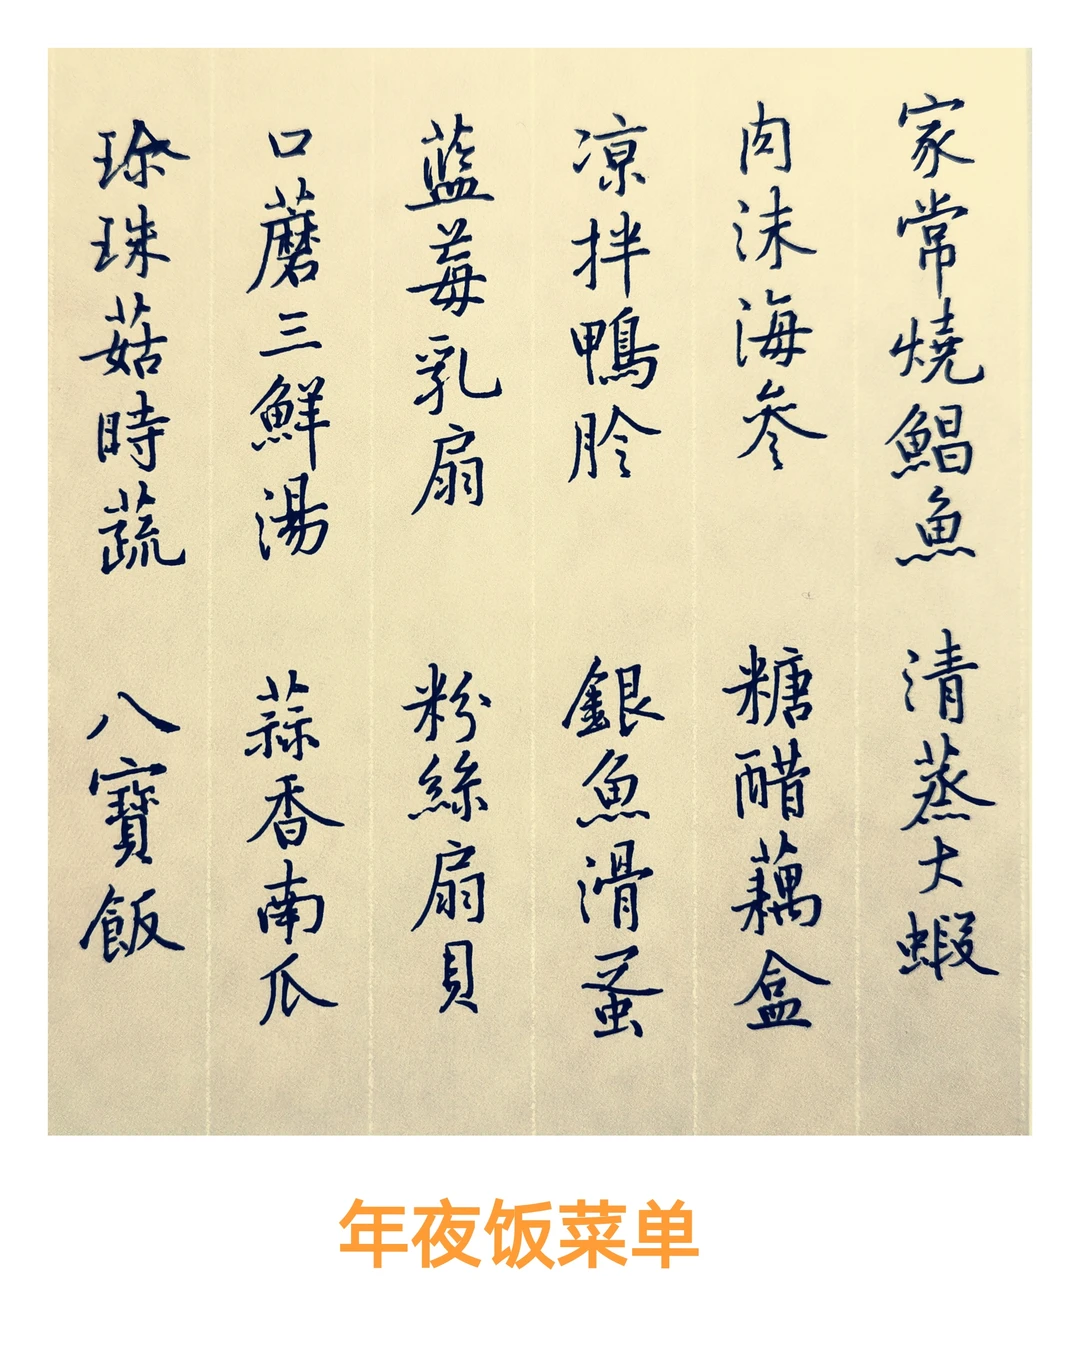 家常燒鯧魚 清蒸大蝦
肉沫海參 糖醋藕盒
凉拌鴨肣 銀魚滑蛋
藍莓乳扇 粉絲扇貝
口蘑三鮮湯 蒜香南瓜
珍珠菇時蔬 八寶飯
年夜饭菜单